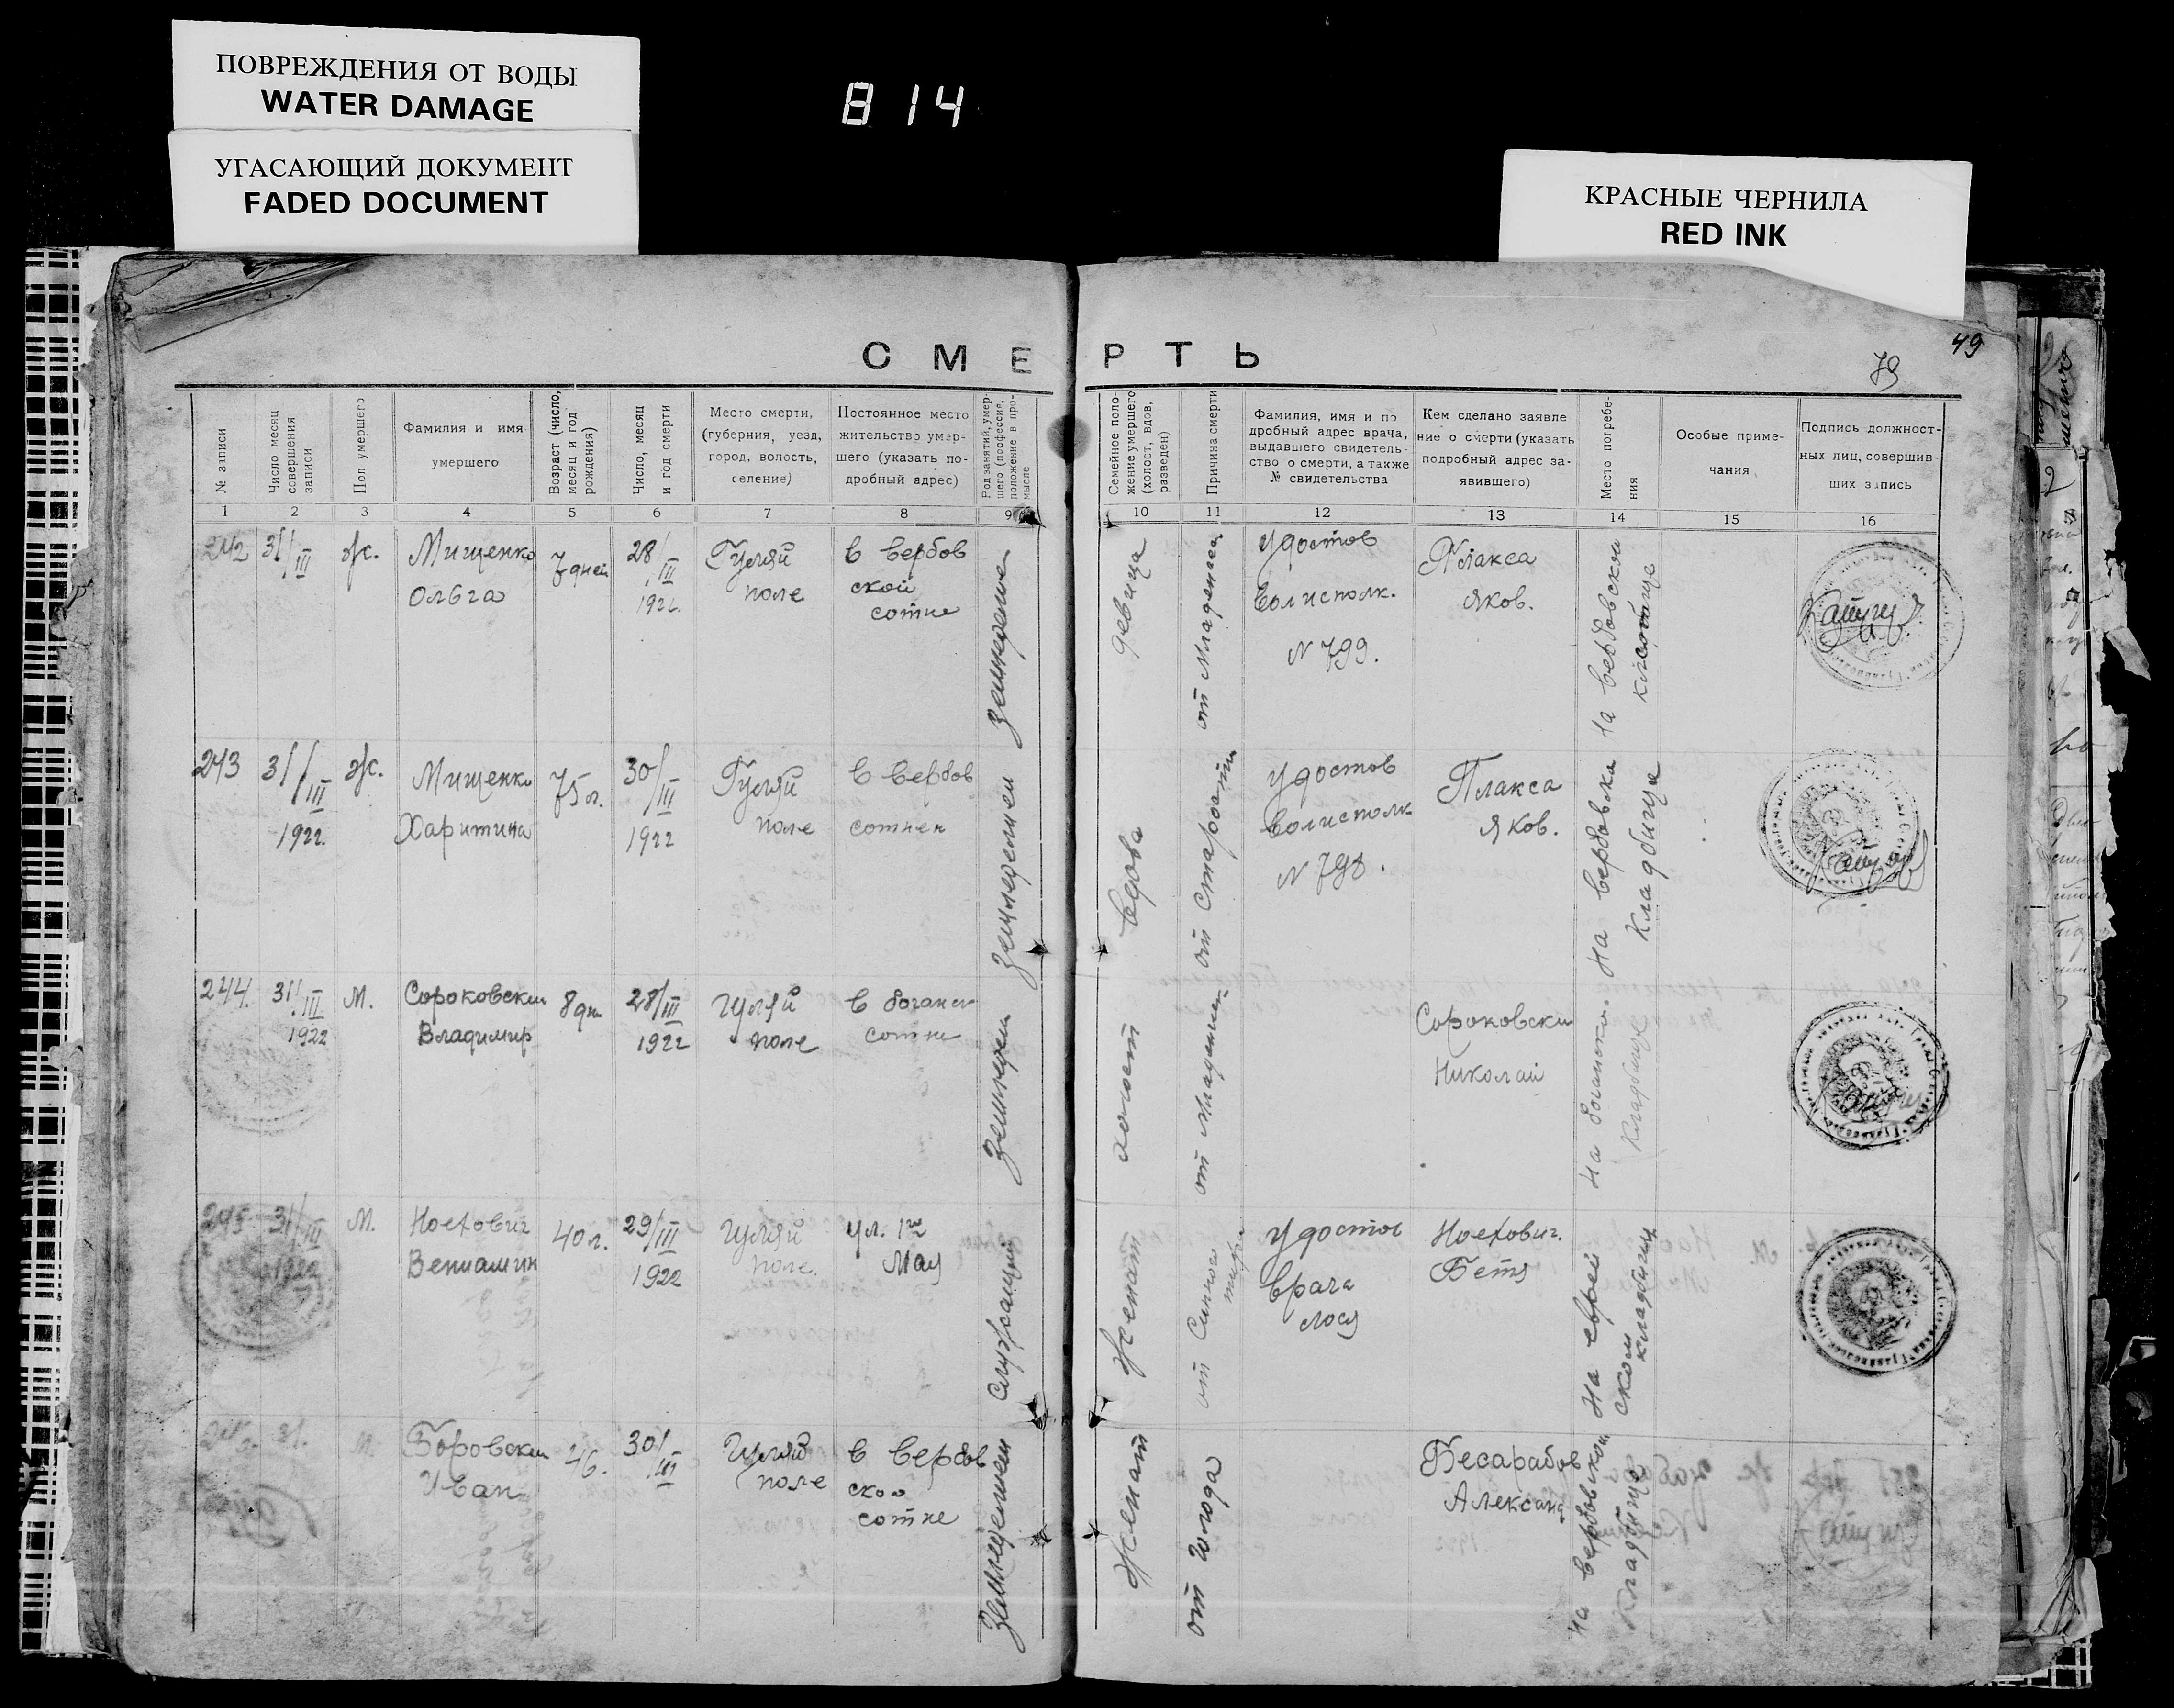 ПОВРЕЖДЕНИЯ ОТ ВОДЫ
WATER DAMAGE
УГАСАЮЩИЙ ДОКУМЕНТ
FADED DOCUMENT
814
КРАСНЫЕ ЧЕРНИЛА
RED INK
49
79
СМЕРТЬ
№ записи
Число месяц
совершения
записи
Пол умершего
Фамилия и имя
умершего
Возраст (число,
месяц и год
рождения)
Число, месяц
и год смерти
Место смерти,
(губерния, уезд,
город, волость,
селение)
Постоянное место
жительство умер-
шего (указать по-
дробный адрес)
Род занятий, умер-
шего (профессия,
положение в про-
мысле
Семейное поло-
жение умершего
(холост, вдов,
разведен)
Причина смерти
Фамилия, имя и по
дробный адрес врача,
выдавшего свидетель-
ство о смерти, а также
№ свидетельства
Кем сделано заявле
ние о смерти (указать
подробный адрес за-
явившего)
Место погребе-
ния
Особые приме-
чания
Подпись должност-
ных лиц, совершив-
ших запись
1 2 3 4 5 6 7 8 9 10 11 12 13 14 15 16
242
31/III
ж.
Мищенко
Ольга
7 дней
28/III
1922
Гуляй
поле
в вербов
ской
сотне
девица
от Младенчес
удостов
волисполк.
N 799.
Плакса
Яков.
на вербовском
243
31/III
1922.
ж.
Мищенко
Харитина
75 л.
30/III
1922
Гуляй
поле
в вербов
сотнен
вдова
от Старости
удостов
волисполк
N 798.
Плакса
Яков.
На вербовска
Кладбище
244
31/III
1922
м.
Сороковский
Владимир
8 дн
28/III
1922
Гуляй
поле
сотне
холост
от Младенчес
Сороковски
Николай
Кладбище
245
31/III
1922
м.
Ноехович
Вениамин
40 л.
29/III
1922
Гуляй
поле.
ул. 1го
Мая
Служащий
Женат
от Сипного
тифа
удостов
врача
Ноехович.
Бетя
На еврей
ском
кладбище
31.
м.
Боровский
Иван
46.
30/III
Гуляй
поле
в вербов
ско
сотне
Земледелием
Женат
от голода
Бесарабов
Алексан
на вербовском
Кладбище